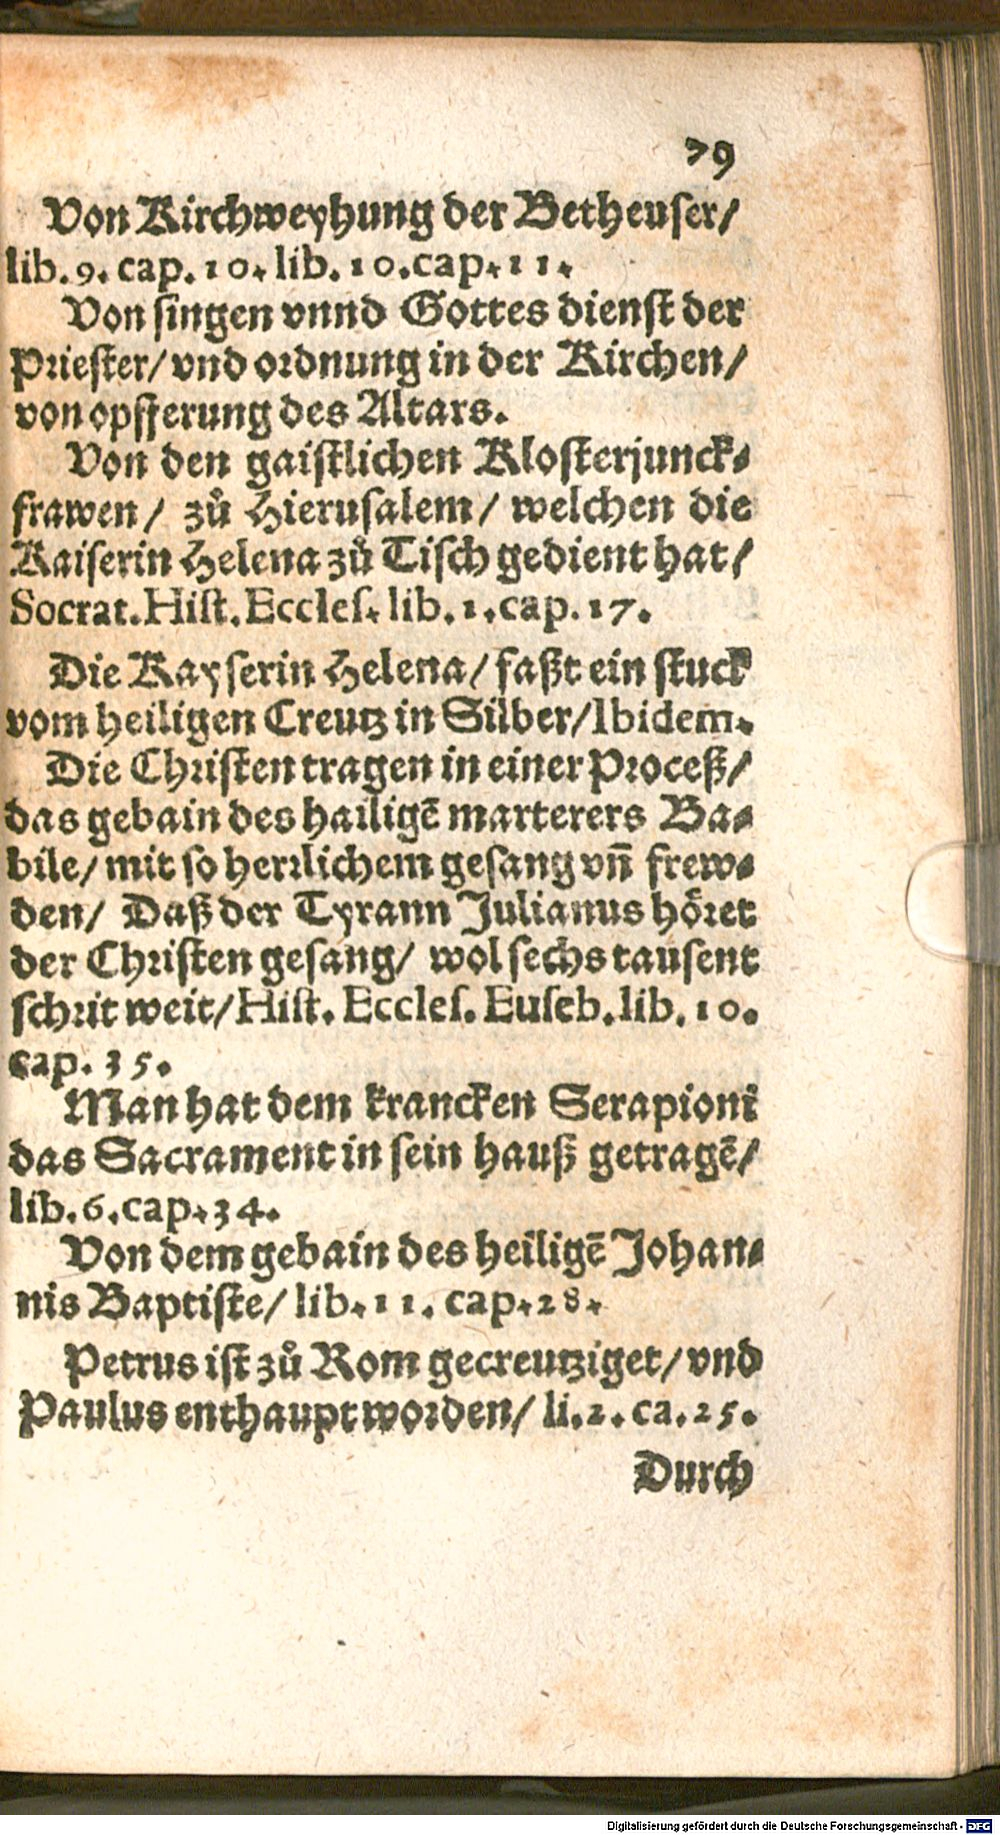 79
Von Kirchweyhung der Betheuser/
lib. 9. cap. 10. lib. 10. cap. 11.
Von singen vnnd Gottes dienst der
Priester/ vnd ordnung in der Kirchen/
von opfferung des Altars.
Von den gaistlichen Klosterjunck-
frawen/ zů Hierusalem/ welchen die
Kaiserin Helena zů Tisch gedient hat/
Socrat. Hist. Eccles. lib. 1. cap. 17.
Die Kayserin Helena/ faßt ein stuck
vom heiligen Creutz in Silber/ Ibidem.
Die Christen tragen in einer Proceß/
das gebain des hailigē marterers Ba-
bile/ mit so herrlichem gesang vn̄ frew-
den/ Daß der Tyrann Julianus höret
der Christen gesang/ wol sechs tausent
schrit weit/ Hist. Eccles. Euseb. lib. 10.
cap. 35.
Man hat dem krancken Serapioni
das Sacrament in sein hauß getragē/
lib. 6. cap. 34.
Von dem gebain des heiligē Johan-
nis Baptiste/ lib. 11. cap. 28.
Petrus ist zů Rom gecreutziget/ vnd
Paulus enthaupt worden/ li. 2. ca. 25.
Durch
Digitalisierung gefördert durch die Deutsche Forschungsgemeinschaft - DFG